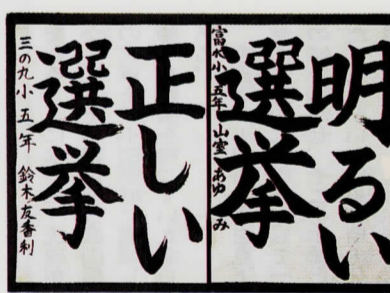 明るい
選挙
富水小 五年 山室 あゆみ
正しい
選挙
三の丸小 五年 鈴木友香利